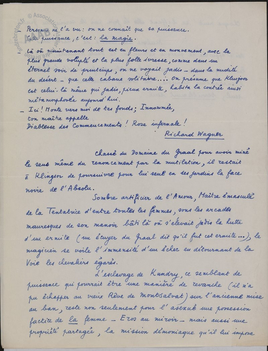 - Personne ne t'a vu : on ne connaît que sa puissance.
Cette puissance, c'est : la magie.
Là où maintenant tout est en fleurs et en mouvement, avec la
plus grande volupté et la plus folle ivresse, comme dans un
éternel soir de printemps, on ne voyait jadis - dans la
de désert - que cette cabane solitaire.... On présume que Klingsor
est celui-là même qui jadis, pieux ermite, habita la contrée ainsi
métamorphosée aujourd'hui.
- Ici ! Monte vers moi de tes fonds, Innommée,
ton maître appelle
Diablesse des Commencements ! Rose infernale !
Richard Wagner
Chassé du Domaine du Graal pour avoir miré
le seuil même du renoncement par la mutilation, il restait
à Klingsor de poursuivre pour lui seul en ses jardins la face
noire de l'Absolu.
Sombre artificier de l'Amour, Maître
de la Tentatrice d'entre toutes les femmes, sous les arcades
mauresques de son manoir bâti là où s'élevait jadis la hutte
d'un ermite (un moyen du Graal dit qu'il fut cet ermite...), le
magicien se voit de l'immensité d'un échec en détournant de la
Voie les chevaliers égarés.
L'esclavage de Kundry, ce semblant de
puissance qui pourrait être une manière de revanche (il n'a
pu échapper au vieux Rêve de Montsalvat) sur l'ancienne mise
au ban, reste non seulement pour l'assaut une possession
factice de la femme - Eros au miroir - mais aussi une
propriété partagée, la mission démoniaque qu'il lui impose